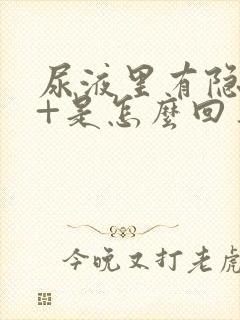 尿液里有隐
+是怎麽回
今晚又打老虎